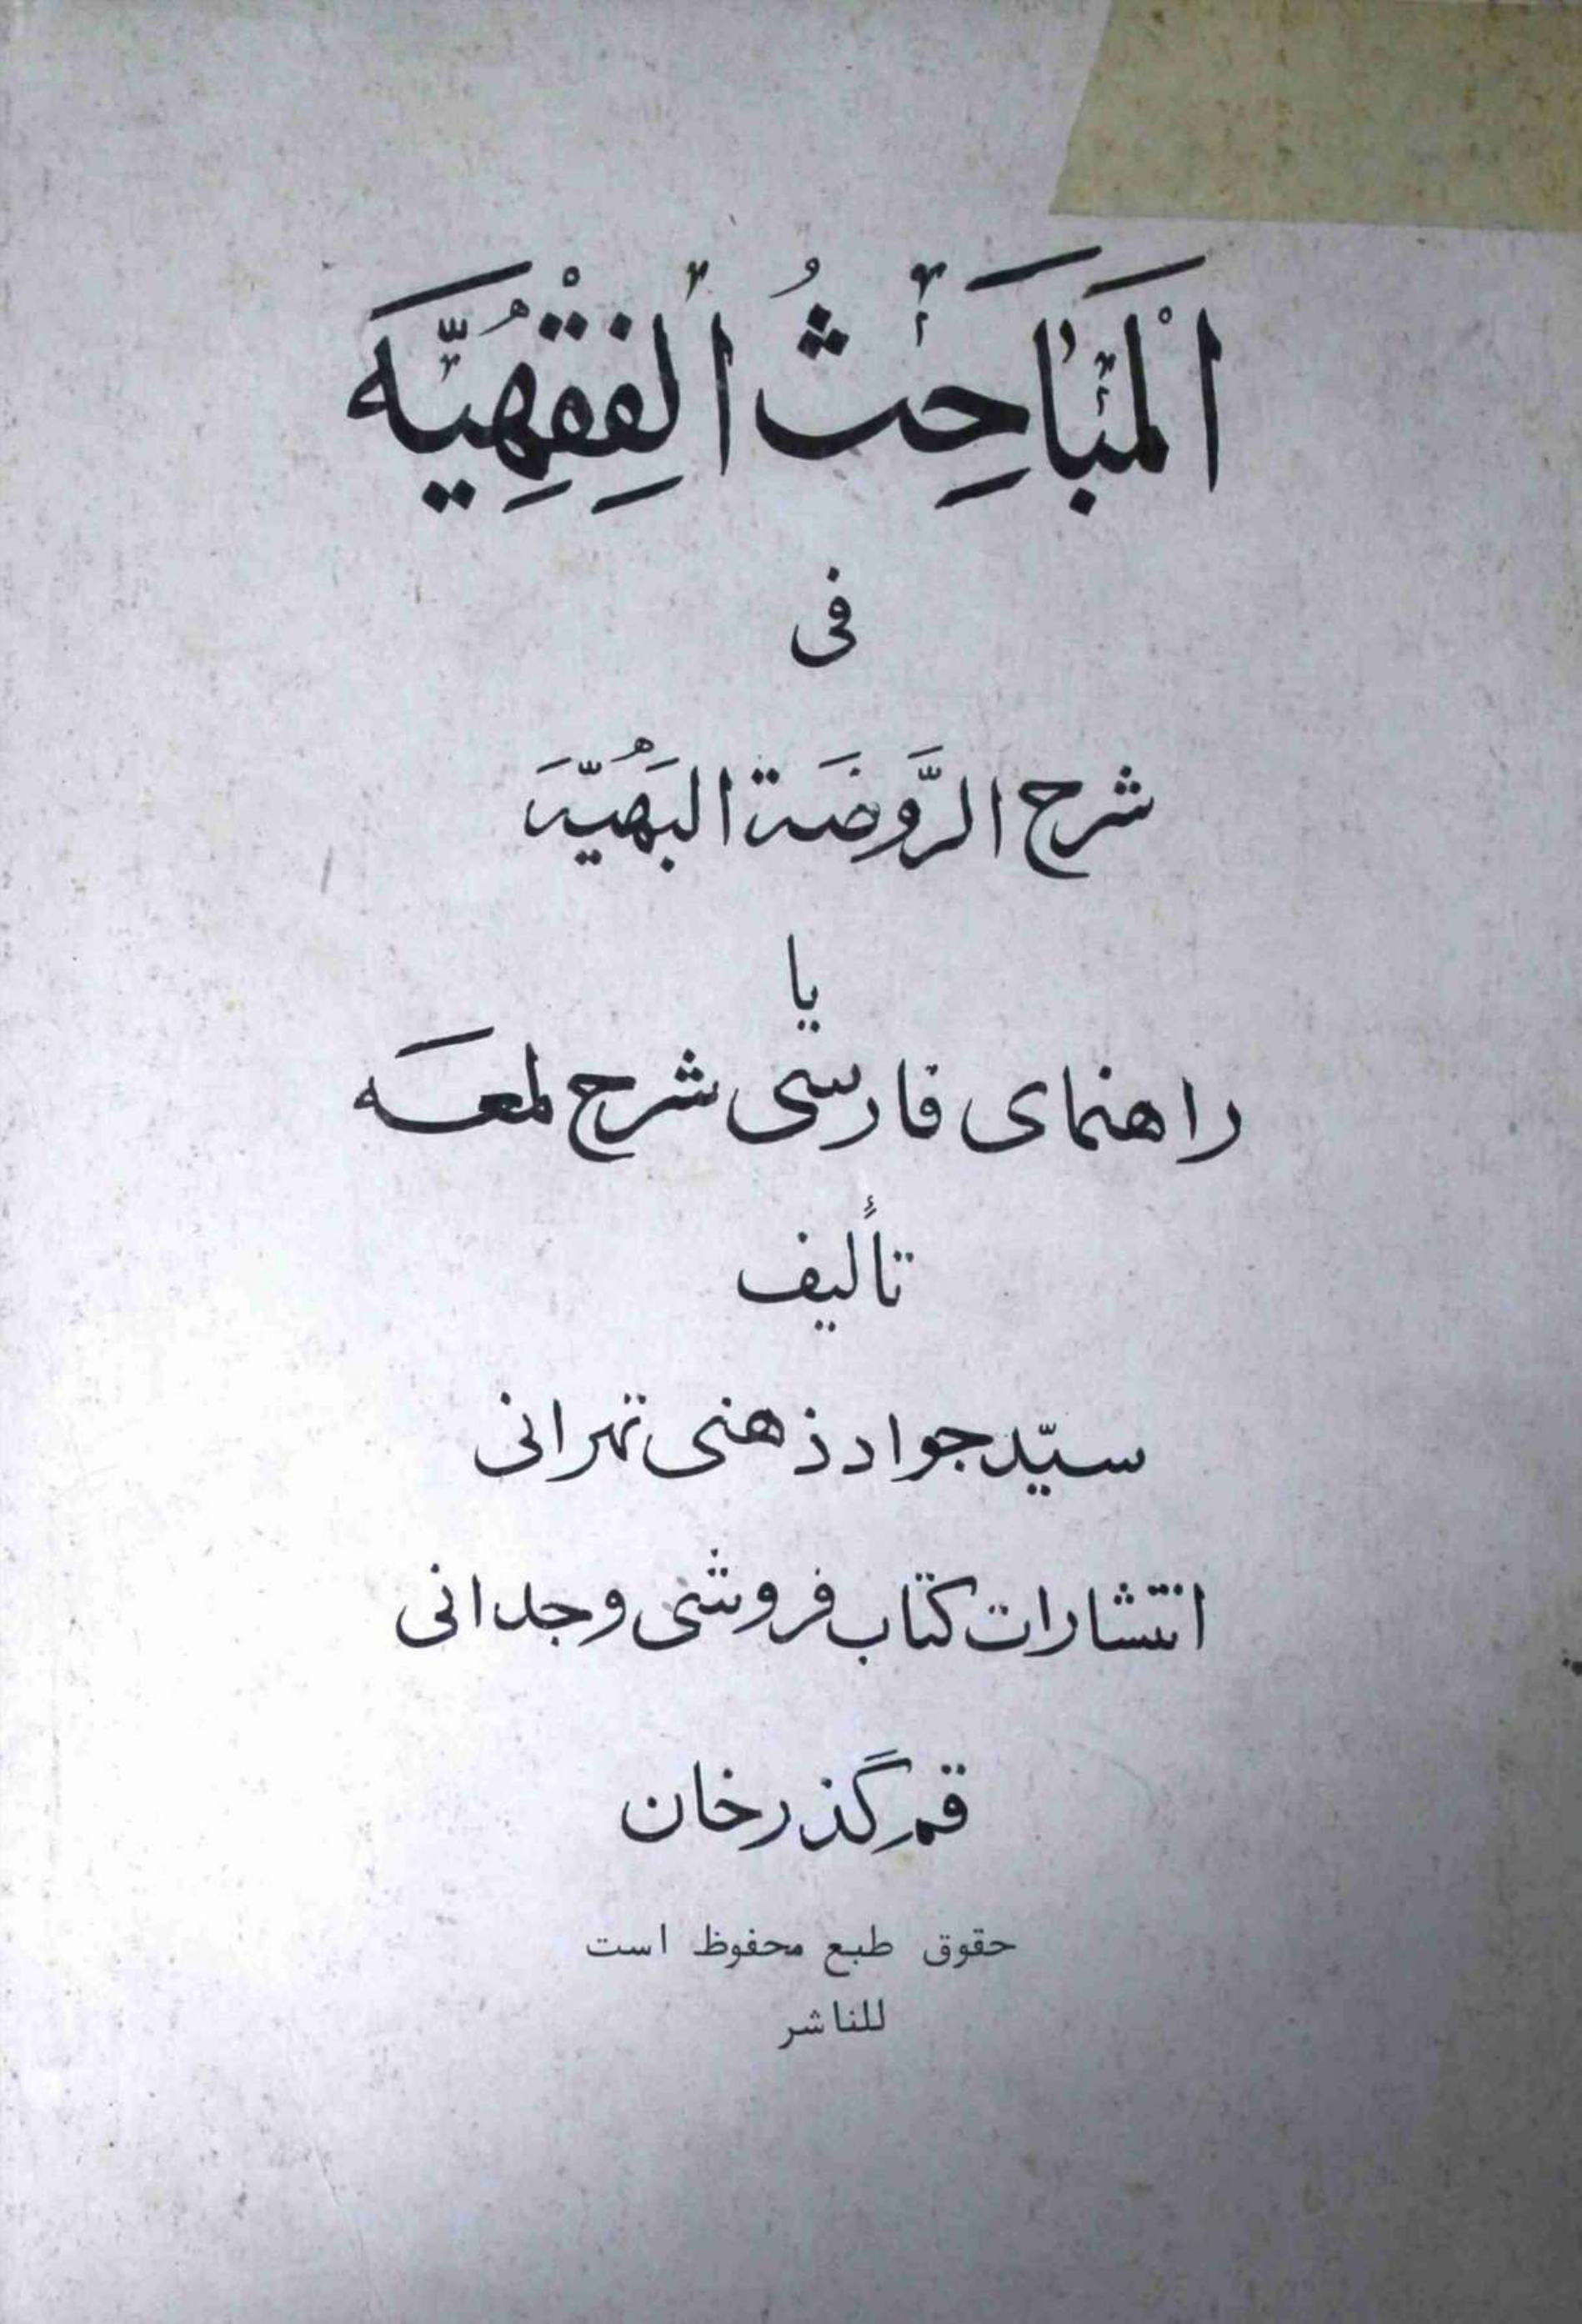 اَلْمَبَاحِثُ الْفِقْهِيَّه
فی
شرح الرَّوضَة البَهيَّه
یا
راهنمای فارسی شرح لمعه
تألیف
سیّد جواد ذهنی تهرانی
انتشارات کتاب فروشی وجدانی
قم گذرخان
حقوق طبع محفوظ است
للناشر